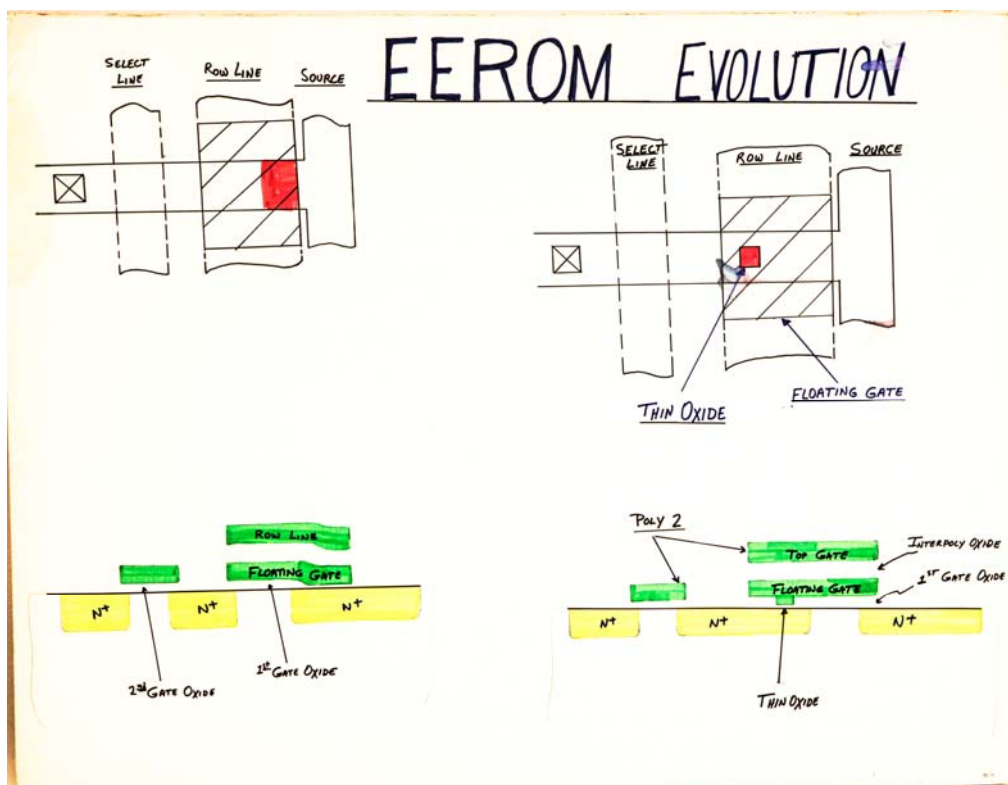 EEROM EVOLUTION
SELECT
LINE
ROW LINE
SOURCE
SELECT
LINE
ROW LINE
SOURCE
THIN OXIDE
FLOATING GATE
ROW LINE
FLOATING GATE
N+
N+
N+
2nd GATE OXIDE
1st GATE OXIDE
POLY 2
TOP GATE
FLOATING GATE
INTERPOLY OXIDE
1st GATE OXIDE
N+
N+
N+
THIN OXIDE